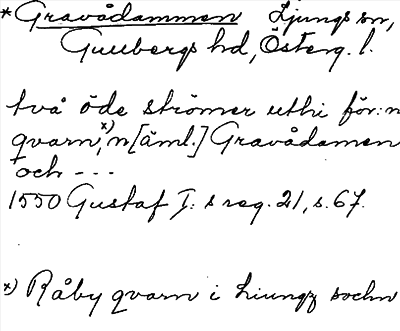 * Gravådammen Ljungs sn,
Gullbergs hd, Österg. l.
två öde strömer uthi för:n
qvarn,x) n[äml.] Gravådamen
och ---
1550 Gustaf I:s reg. 21, s. 67.
x) Råby qvarn i Liungz sochn